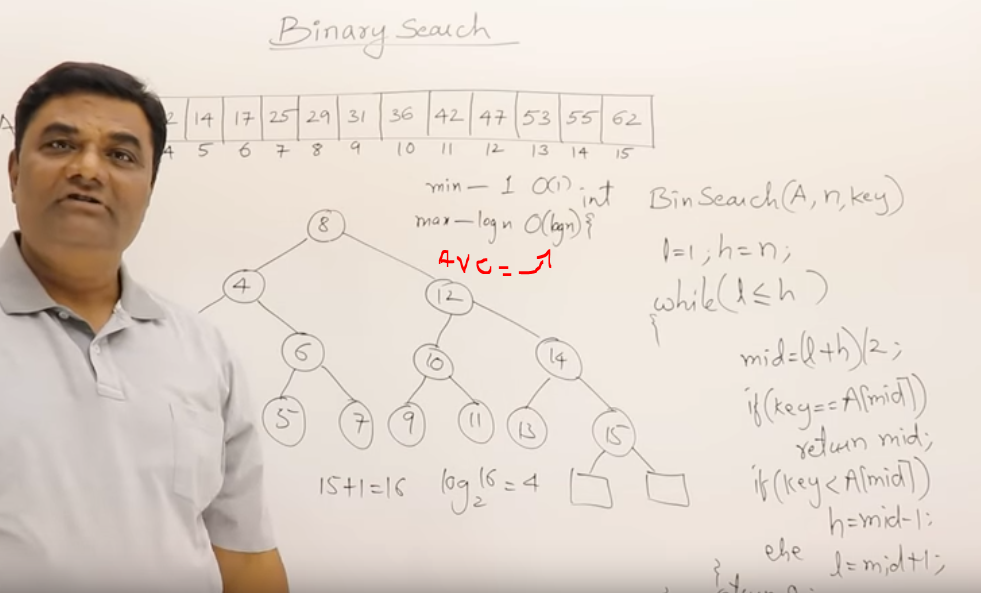 Binary Search
A 2 14 17 25 29 31 36 42 47 53 55 62
4 5 6 7 8 9 10 11 12 13 14 15
min — 1 O(1)
max — logn O(logn)
AVG =
8
4 12
6 10 14
5 7 9 11 13 15
15+1=16 log₂16 = 4
int BinSearch(A, n, key)
{
l=1; h=n;
while(l≤h)
{
mid=(l+h)/2;
if(key==A[mid])
return mid;
if(key<A[mid])
h=mid-1;
else l=mid+1;
}